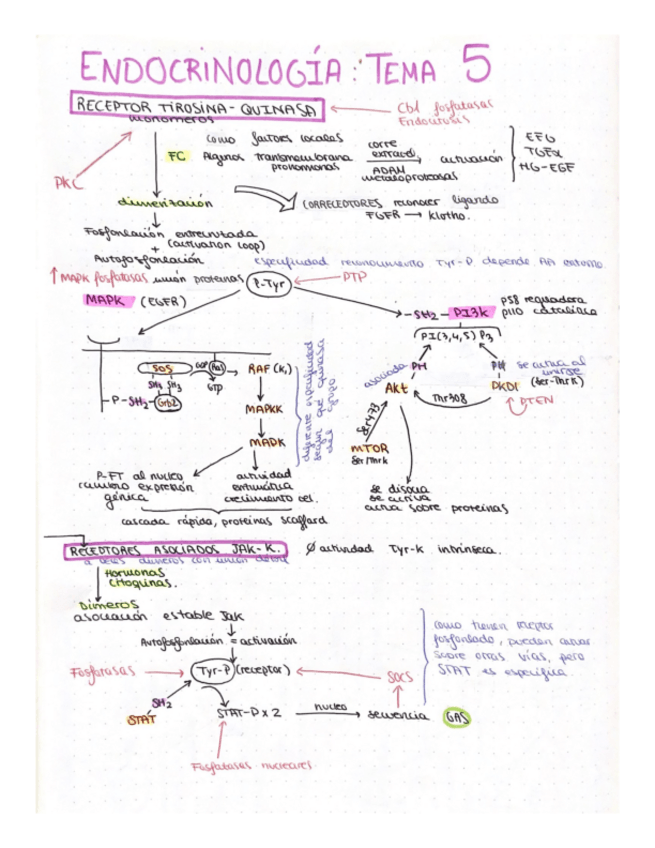 ENDOCRINOLOGÍA: TEMA 5
RECEPTOR TIROSINA-QUINASA
Cbl fosfatasas
Endocitosis
monómeros
PKC
FC
como factores locales
Algunos transmembrana
prohormonas
corte
extracel
ADAM
metaloproteasas
activación
EFG
TGFα
HG-EGF
dimerización
CORRECEPTORES reconocer ligando
FGFR → klotho.
Fosforilación entrecruzada
+ (activation loop)
Autofosforilación
especificidad reconocimiento Tyr-P depende AA entorno.
↑ MAPK fosfatasas
unión proteínas
P-Tyr
PTP
MAPK (EGFR)
-SH2- PI3k
p58 reguladora
p110 catalítica
PI(3,4,5)P3
SOS
GDP
Ras
GTP
RAF (K,)
SH3 SH3
-P-SH2-Grb2
MAPKK
MAPK
diferente especificidad
según que quinasa
del grupo
asociada
PH
Akt
PH
PKD1
se activa al
unirse
(Ser-Thr K)
PTEN
Thr308
Ser473
mTOR
Ser/Thr k
se disocia
se activa
actua sobre proteínas
P-FT al nucleo
cambio expresión
génica
actividad
enzimática
crecimiento cel.
cascada rápida, proteínas scaffard
RECEPTORES ASOCIADOS JAK-K.
∅ actividad Tyr-k intrínseca.
a veces dímeros con unión
Hormonas
Citoquinas.
Dímeros
asociación estable Jak
Autofosforilación = activación
Fosfatasas
Tyr-P (receptor)
SOCS
SH2
STAT
STAT-P x 2
nucleo
secuencia GAS
Fosfatasas nucleares
como tienen receptor
fosforilado, pueden activar
sobre otras vías, pero
STAT es específica.